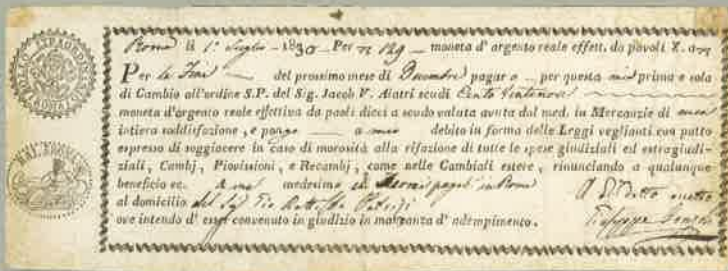 BOLLO STRAORDINARIO
ROMA
Roma li 1º Luglio 1830 Per n 129 — moneta d' argento reale effett. da pavoli X.
Per la fine — del prossimo mese di Decembre pagar o -- per questa mia prima e sola
di Cambio all'ordine S.P. del Sig. Jacob V. Alatri scudi Cento Ventinove
moneta d'argento reale effettiva da paoli dieci a scudo valuta avuta dal med. in Mercanzie di mia
intiera soddisfazione, e pongo — a mio debito in forma delle Leggi veglianti con patto
espresso di soggiacere in caso di morosità alla rifazione di tutte le spese giudiziali ed estragiudi-
ziali, Cambj, Provissioni, e Recambj, come nelle Cambiali estere, rinunciando a qualunque
beneficio ec. a me medesimo in pagab in Roma
al domicilio del Sig
ove intendo d' esser convenuto in giudizio in mancanza d' adempimento.